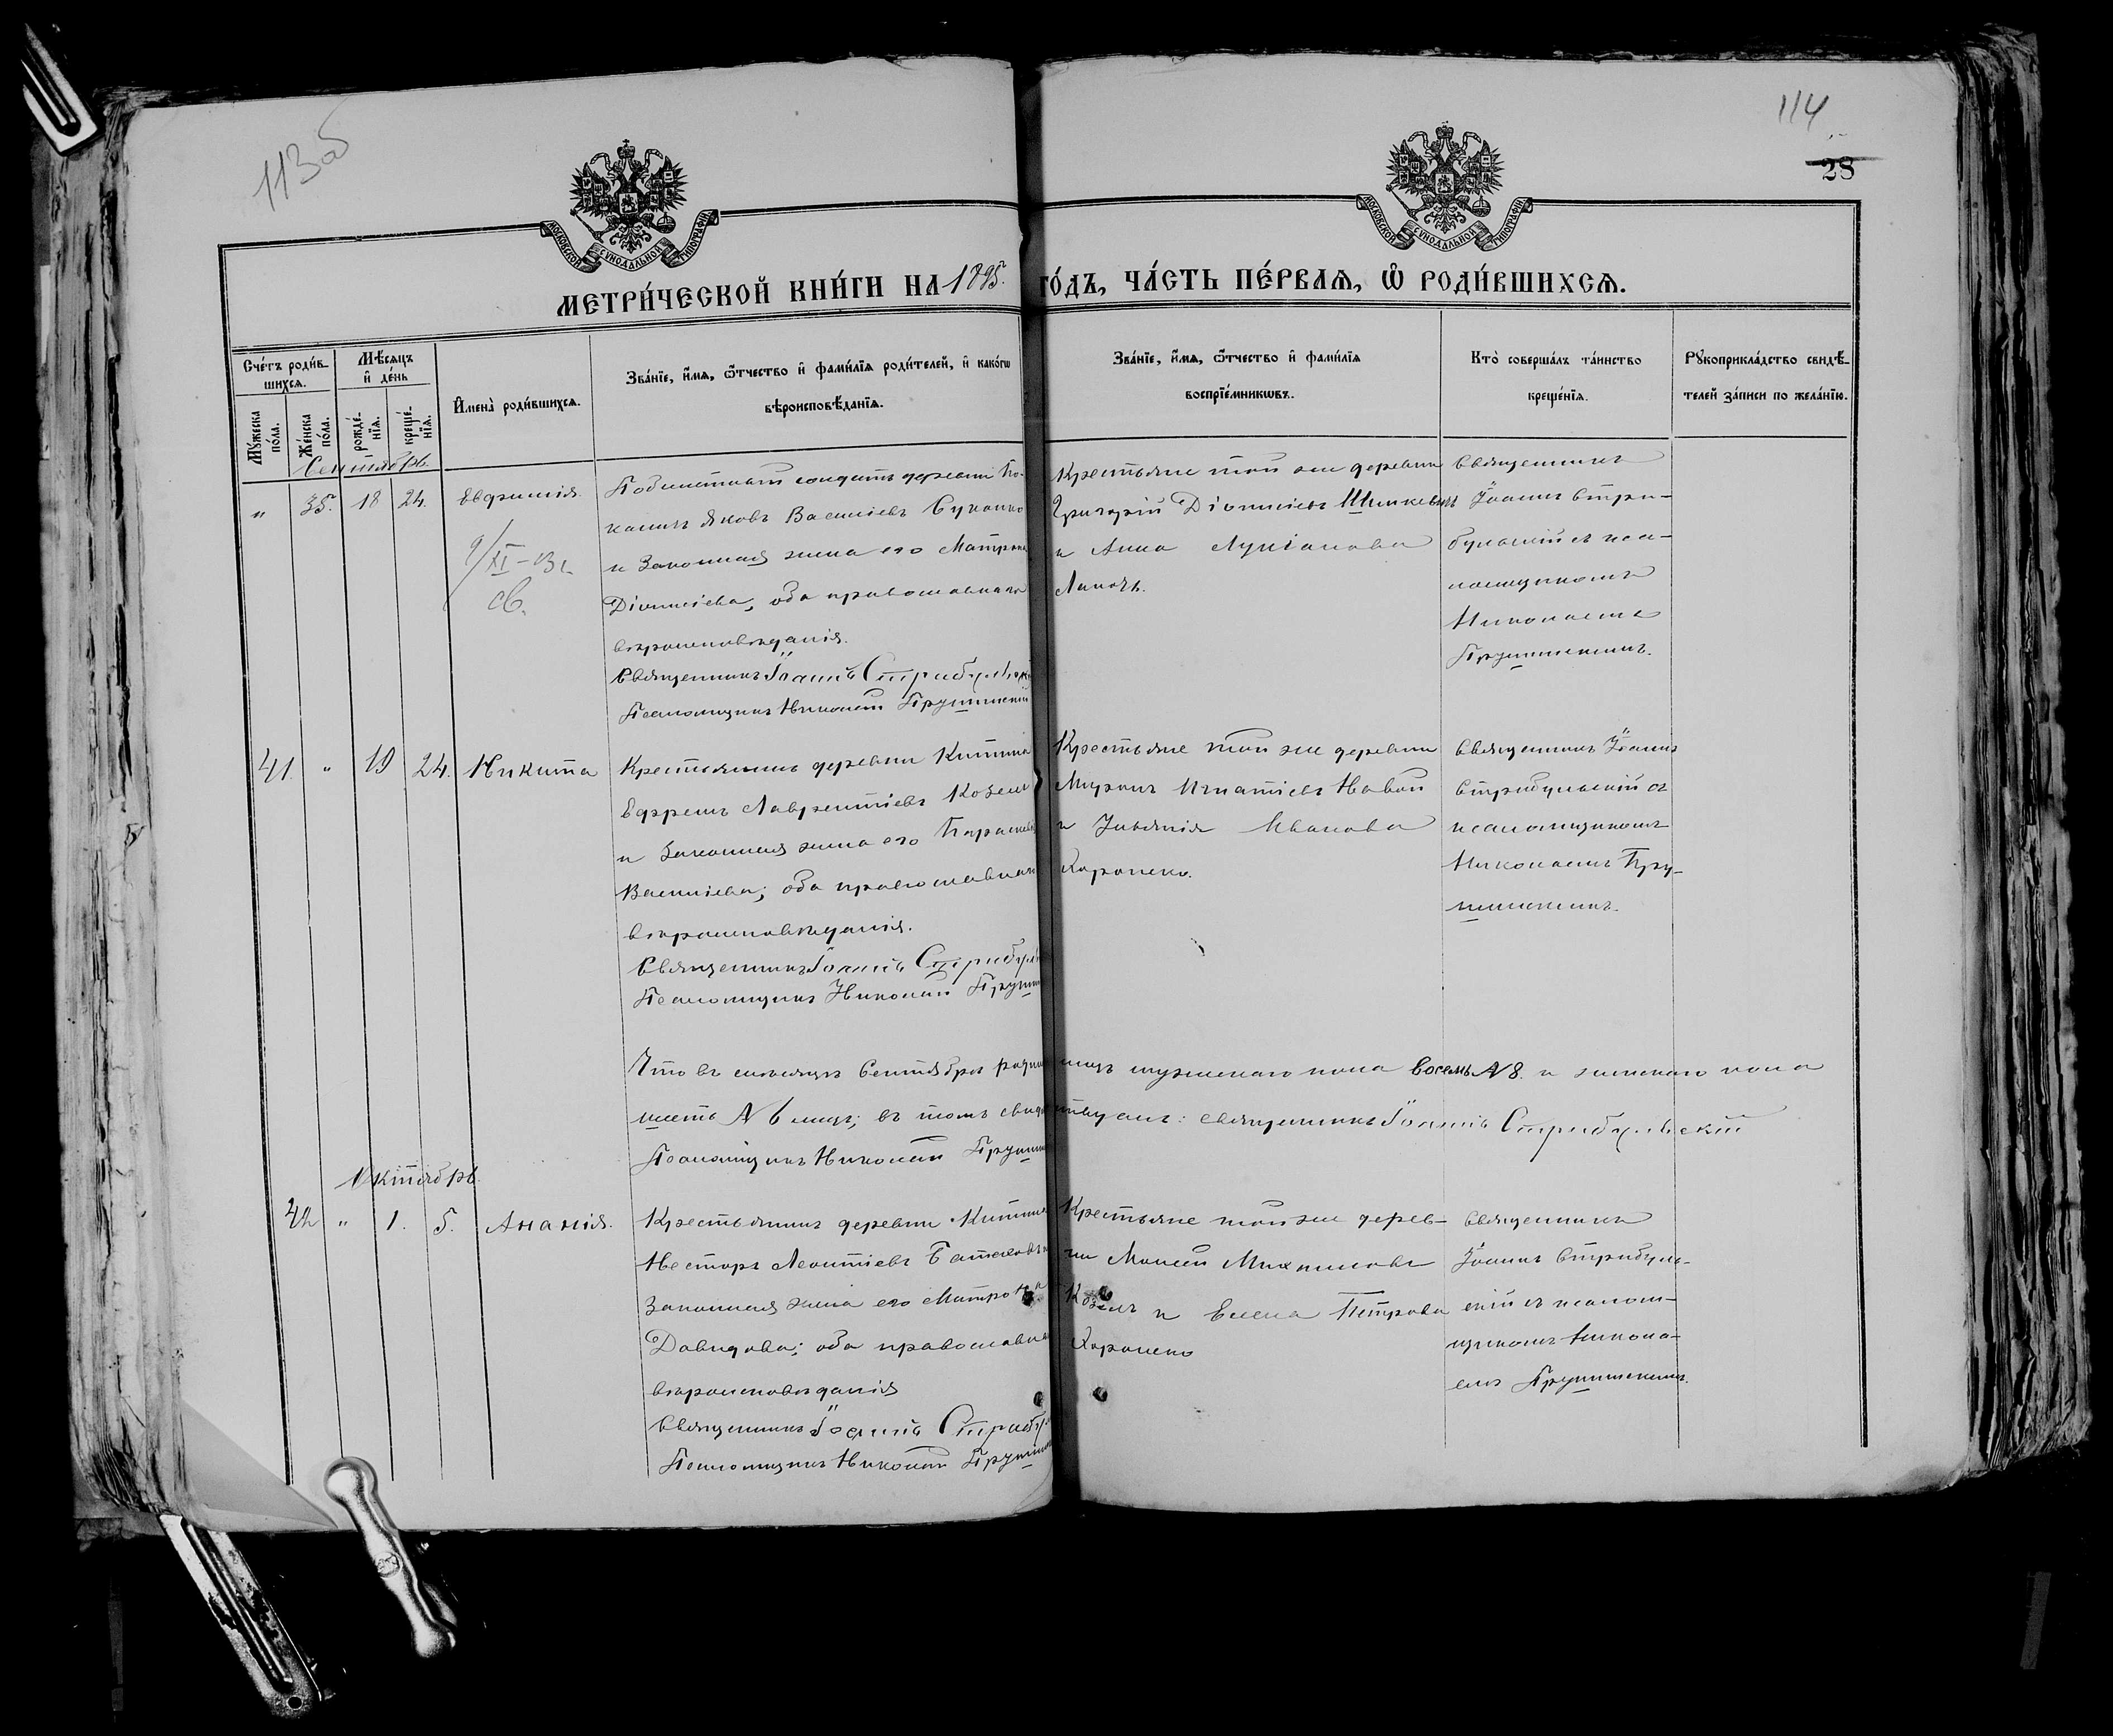 113об
114
28
МОСКОВСКОЙ СѴНОДАЛЬНОЙ ТИПОГРАФІИ
МОСКОВСКОЙ СѴНОДАЛЬНОЙ ТИПОГРАФІИ
МЕТРИ́ЧЕСКОЙ КНИ́ГИ НА 1895 ГО́ДЪ, ЧА́СТЬ ПЕ́РВАѦ, Ѽ РОДИ́ВШИХСѦ.
Сче́тъ роди́в-
шихсѧ.
Мꙋ́жеска по́ла.
Же́нска по́ла.
Мѣ́сѧцъ и҆ де́нь
рожде́-
нїѧ.
креще́-
нїѧ.
И҆мена̀ роди́вшихсѧ.
Зва́нїе, и҆́мѧ, ѻ҆́тчество и҆ фами́лїѧ роди́телей, и҆ како́гѡ
вѣроисповѣ́данїѧ.
Зва́нїе, и҆́мѧ, ѻ҆́тчество и҆ фами́лїѧ
воспрїе́мникѡвъ.
Кто̀ соверша́лъ та́инство
креще́нїѧ.
Рꙋкоприкла́дство свидѣ́-
телей за́писи по жела́нїю.
Сентябрь
" 35. 18 24. Евфимія.
9/XI-13 г.
св.
солдатъ деревни
Яковъ Василіевъ
и законная жена его Матрона
Діонисіева, оба православнаго
вѣроисповѣданія.
Священникъ Іоаннъ Стрибульскій
Псаломщикъ Николай
Крестьяне той же деревни
Григорій Діонисіевъ Шинкевичъ
и Анна Лукіанова
Священникъ
Іоаннъ Стри-
бульскій съ пса-
ломщикомъ
Николаемъ
41. " 19 24. Никита
Крестьянинъ деревни
Ефремъ Лаврентіевъ Козелъ
и законная жена его Параскева
Василіева; оба православнаго
вѣроисповѣданія.
Священникъ Іоаннъ Стрибул
Псаломщикъ Николай
Крестьяне той же деревни
Миронъ Игнатіевъ
и Иванова
Священникъ Іоаннъ
Стрибульскій съ
псаломщикомъ
Николаемъ
Что въ мѣсяцѣ Сентябрѣ мужескаго пола восемь № 8. и женскаго пола
шесть № 6 лицъ; въ томъ свидѣтельствуемъ: священникъ Іоаннъ Стрибульскій
Псаломщикъ Николай
Октябрь
42 " 1. 5. Ананія.
Крестьянинъ деревни
Несторъ Леонтіевъ
законная жена его Матрона
Давидова; оба православнаго
вѣроисповѣданія
Священникъ Іоаннъ Стрибу
Псаломщикъ Николай
Крестьяне той же дерев-
ни Моисей Михаиловъ
Козелъ и Елена Петрова
Священникъ
Іоаннъ Стрибуль-
скій съ псалом-
щикомъ Никола-
емъ